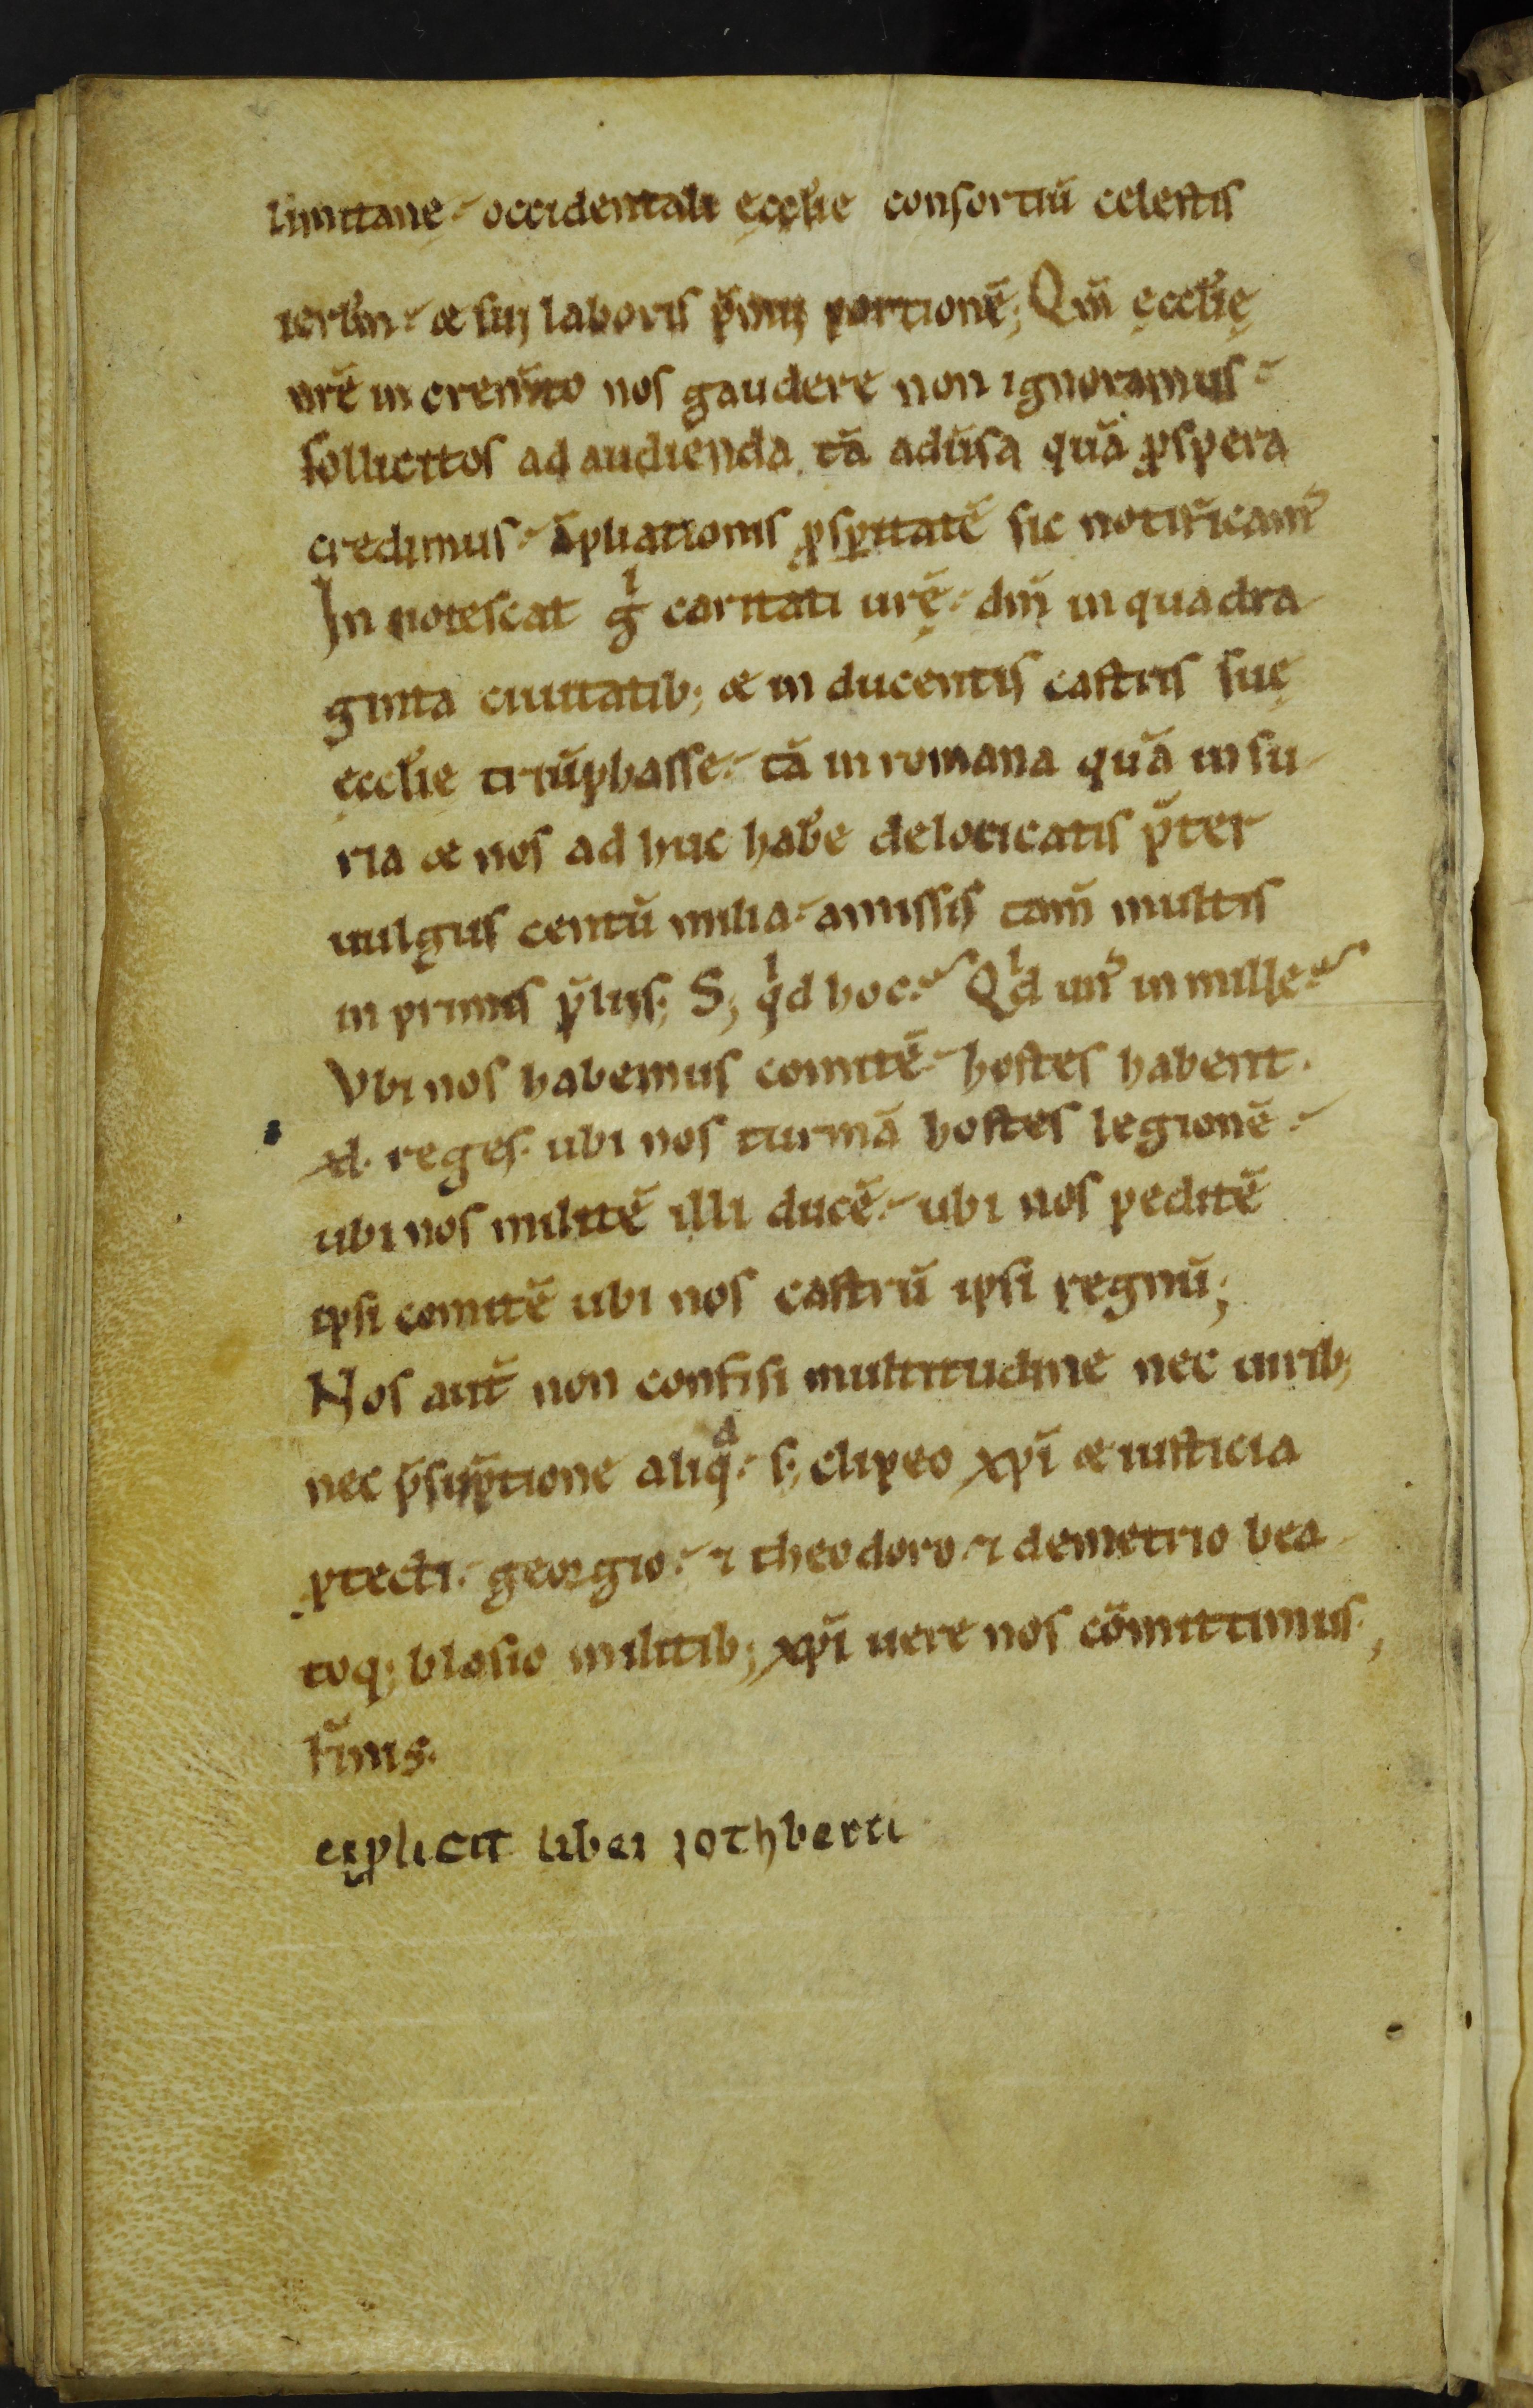 limitanę. occidentali ęcclię consortiū celestis
ierłm. & sui laboris p̄mii portionē; Qm̄ ęcclię
urē in crem̄to nos gaudere non ignoramus.
sollicitos ad audienda tā adūsa quā ꝓspera
credimus. āpliationis ꝓsꝑitatē sic notificam᷒
In notescat gͥ caritati urę̄. dn̄m in quadra
ginta ciuitatib; & in ducentis castris suę
ęcclię triūphasse. tā in romana quā in su
ria & nos ad huc habē deloricatis p̄ter
uulgus centū milia. amissis tam̄ multis
in primis p̄liis; S; qͥd hoc. Qͥd un᷒ in mille.
Vbi nos habemus comitē. hostes habent.
xl. reges. ubi nos turmā hostes legionē.
ubi nos militē illi ducē. ubi nos peditē
ipsi comitē ubi nos castrū ipsi regnū;
Nos aut̄ non confisi multitudine nec uirib;
nec p̄sūptione aliqͣ. s; clipeo xp̄i & iusticia
ꝓtecti. georgio. ⁊ theodoro. ⁊ demetrio bea
toq; blasio militib; xp̄i uere nos cōmittimus;
finis.
explicit liber rothberti